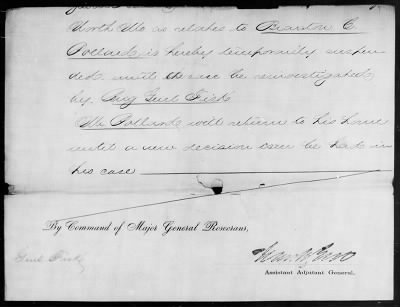 North Mo as relates to Braxton C.
Pollard, is hereby temporarily suspen-
ded until the case be reinvestigated
by Brig Genl Fisk
Mr Pollard will return to his home
until a new decision can be had in
his case
By Command of Major General Rosecrans,
Genl Fisk
Assistant Adjutant General.